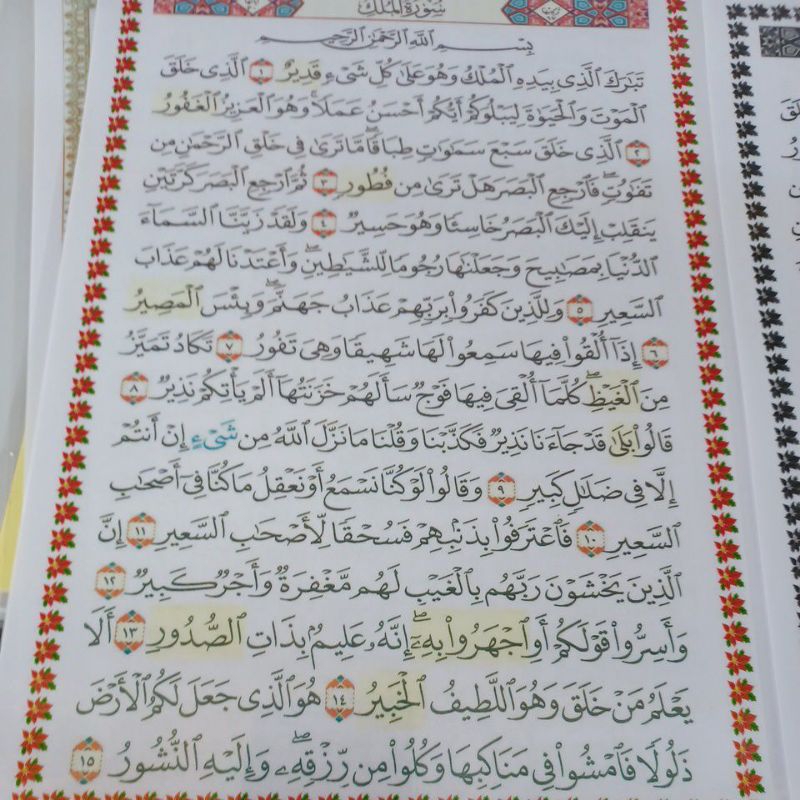 سورة الملك
بِسْمِ اللَّهِ الرَّحْمَٰنِ الرَّحِيمِ
تَبَارَكَ الَّذِي بِيَدِهِ الْمُلْكُ وَهُوَ عَلَىٰ كُلِّ شَيْءٍ قَدِيرٌ ١ الَّذِي خَلَقَ
الْمَوْتَ وَالْحَيَاةَ لِيَبْلُوَكُمْ أَيُّكُمْ أَحْسَنُ عَمَلًا ۚ وَهُوَ الْعَزِيزُ الْغَفُورُ
٢ الَّذِي خَلَقَ سَبْعَ سَمَاوَاتٍ طِبَاقًا ۖ مَا تَرَىٰ فِي خَلْقِ الرَّحْمَٰنِ مِن
تَفَاوُتٍ ۖ فَارْجِعِ الْبَصَرَ هَلْ تَرَىٰ مِن فُطُورٍ ٣ ثُمَّ ارْجِعِ الْبَصَرَ كَرَّتَيْنِ
يَنقَلِبْ إِلَيْكَ الْبَصَرُ خَاسِئًا وَهُوَ حَسِيرٌ ٤ وَلَقَدْ زَيَّنَّا السَّمَاءَ
الدُّنْيَا بِمَصَابِيحَ وَجَعَلْنَاهَا رُجُومًا لِّلشَّيَاطِينِ ۖ وَأَعْتَدْنَا لَهُمْ عَذَابَ
السَّعِيرِ ٥ وَلِلَّذِينَ كَفَرُوا بِرَبِّهِمْ عَذَابُ جَهَنَّمَ ۖ وَبِئْسَ الْمَصِيرُ
٦ إِذَا أُلْقُوا فِيهَا سَمِعُوا لَهَا شَهِيقًا وَهِيَ تَفُورُ ٧ تَكَادُ تَمَيَّزُ
مِنَ الْغَيْظِ ۖ كُلَّمَا أُلْقِيَ فِيهَا فَوْجٌ سَأَلَهُمْ خَزَنَتُهَا أَلَمْ يَأْتِكُمْ نَذِيرٌ ٨
قَالُوا بَلَىٰ قَدْ جَاءَنَا نَذِيرٌ فَكَذَّبْنَا وَقُلْنَا مَا نَزَّلَ اللَّهُ مِن شَيْءٍ إِنْ أَنتُمْ
إِلَّا فِي ضَلَالٍ كَبِيرٍ ٩ وَقَالُوا لَوْ كُنَّا نَسْمَعُ أَوْ نَعْقِلُ مَا كُنَّا فِي أَصْحَابِ
السَّعِيرِ ١٠ فَاعْتَرَفُوا بِذَنبِهِمْ فَسُحْقًا لِّأَصْحَابِ السَّعِيرِ ١١ إِنَّ
الَّذِينَ يَخْشَوْنَ رَبَّهُم بِالْغَيْبِ لَهُم مَّغْفِرَةٌ وَأَجْرٌ كَبِيرٌ ١٢
وَأَسِرُّوا قَوْلَكُمْ أَوِ اجْهَرُوا بِهِ ۖ إِنَّهُ عَلِيمٌ بِذَاتِ الصُّدُورِ ١٣ أَلَا
يَعْلَمُ مَنْ خَلَقَ وَهُوَ اللَّطِيفُ الْخَبِيرُ ١٤ هُوَ الَّذِي جَعَلَ لَكُمُ الْأَرْضَ
ذَلُولًا فَامْشُوا فِي مَنَاكِبِهَا وَكُلُوا مِن رِّزْقِهِ ۖ وَإِلَيْهِ النُّشُورُ ١٥